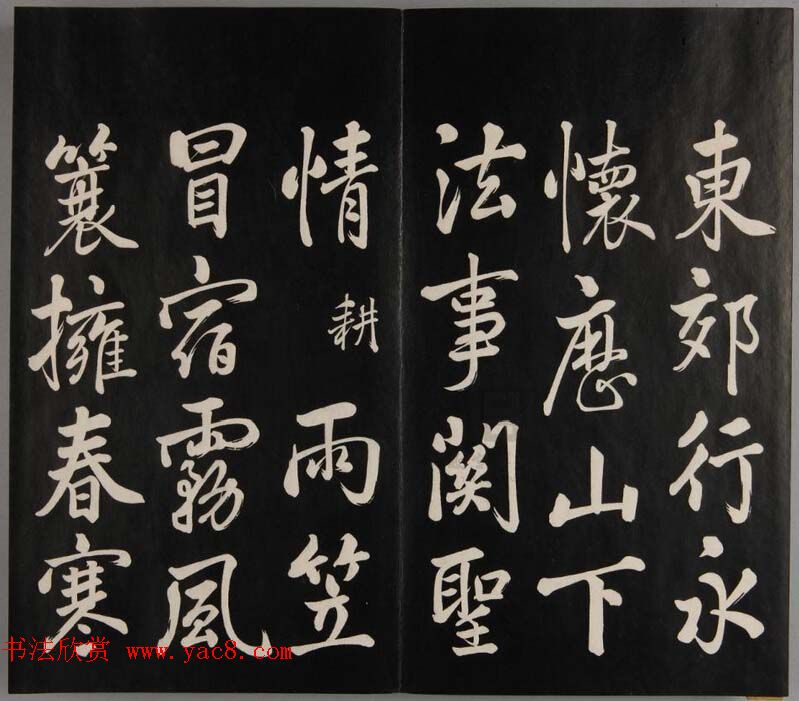 東郊行永
懷厯山下
法事關聖
情 耕 雨笠
冒宿霧風
簑擁春寒
书法欣赏 www.yac8.com